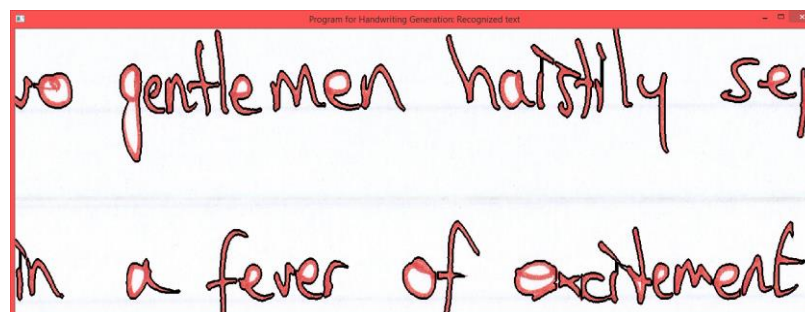 Program for Handwriting Generation: Recognized text
gentlemen haistily
in a fever of excitement